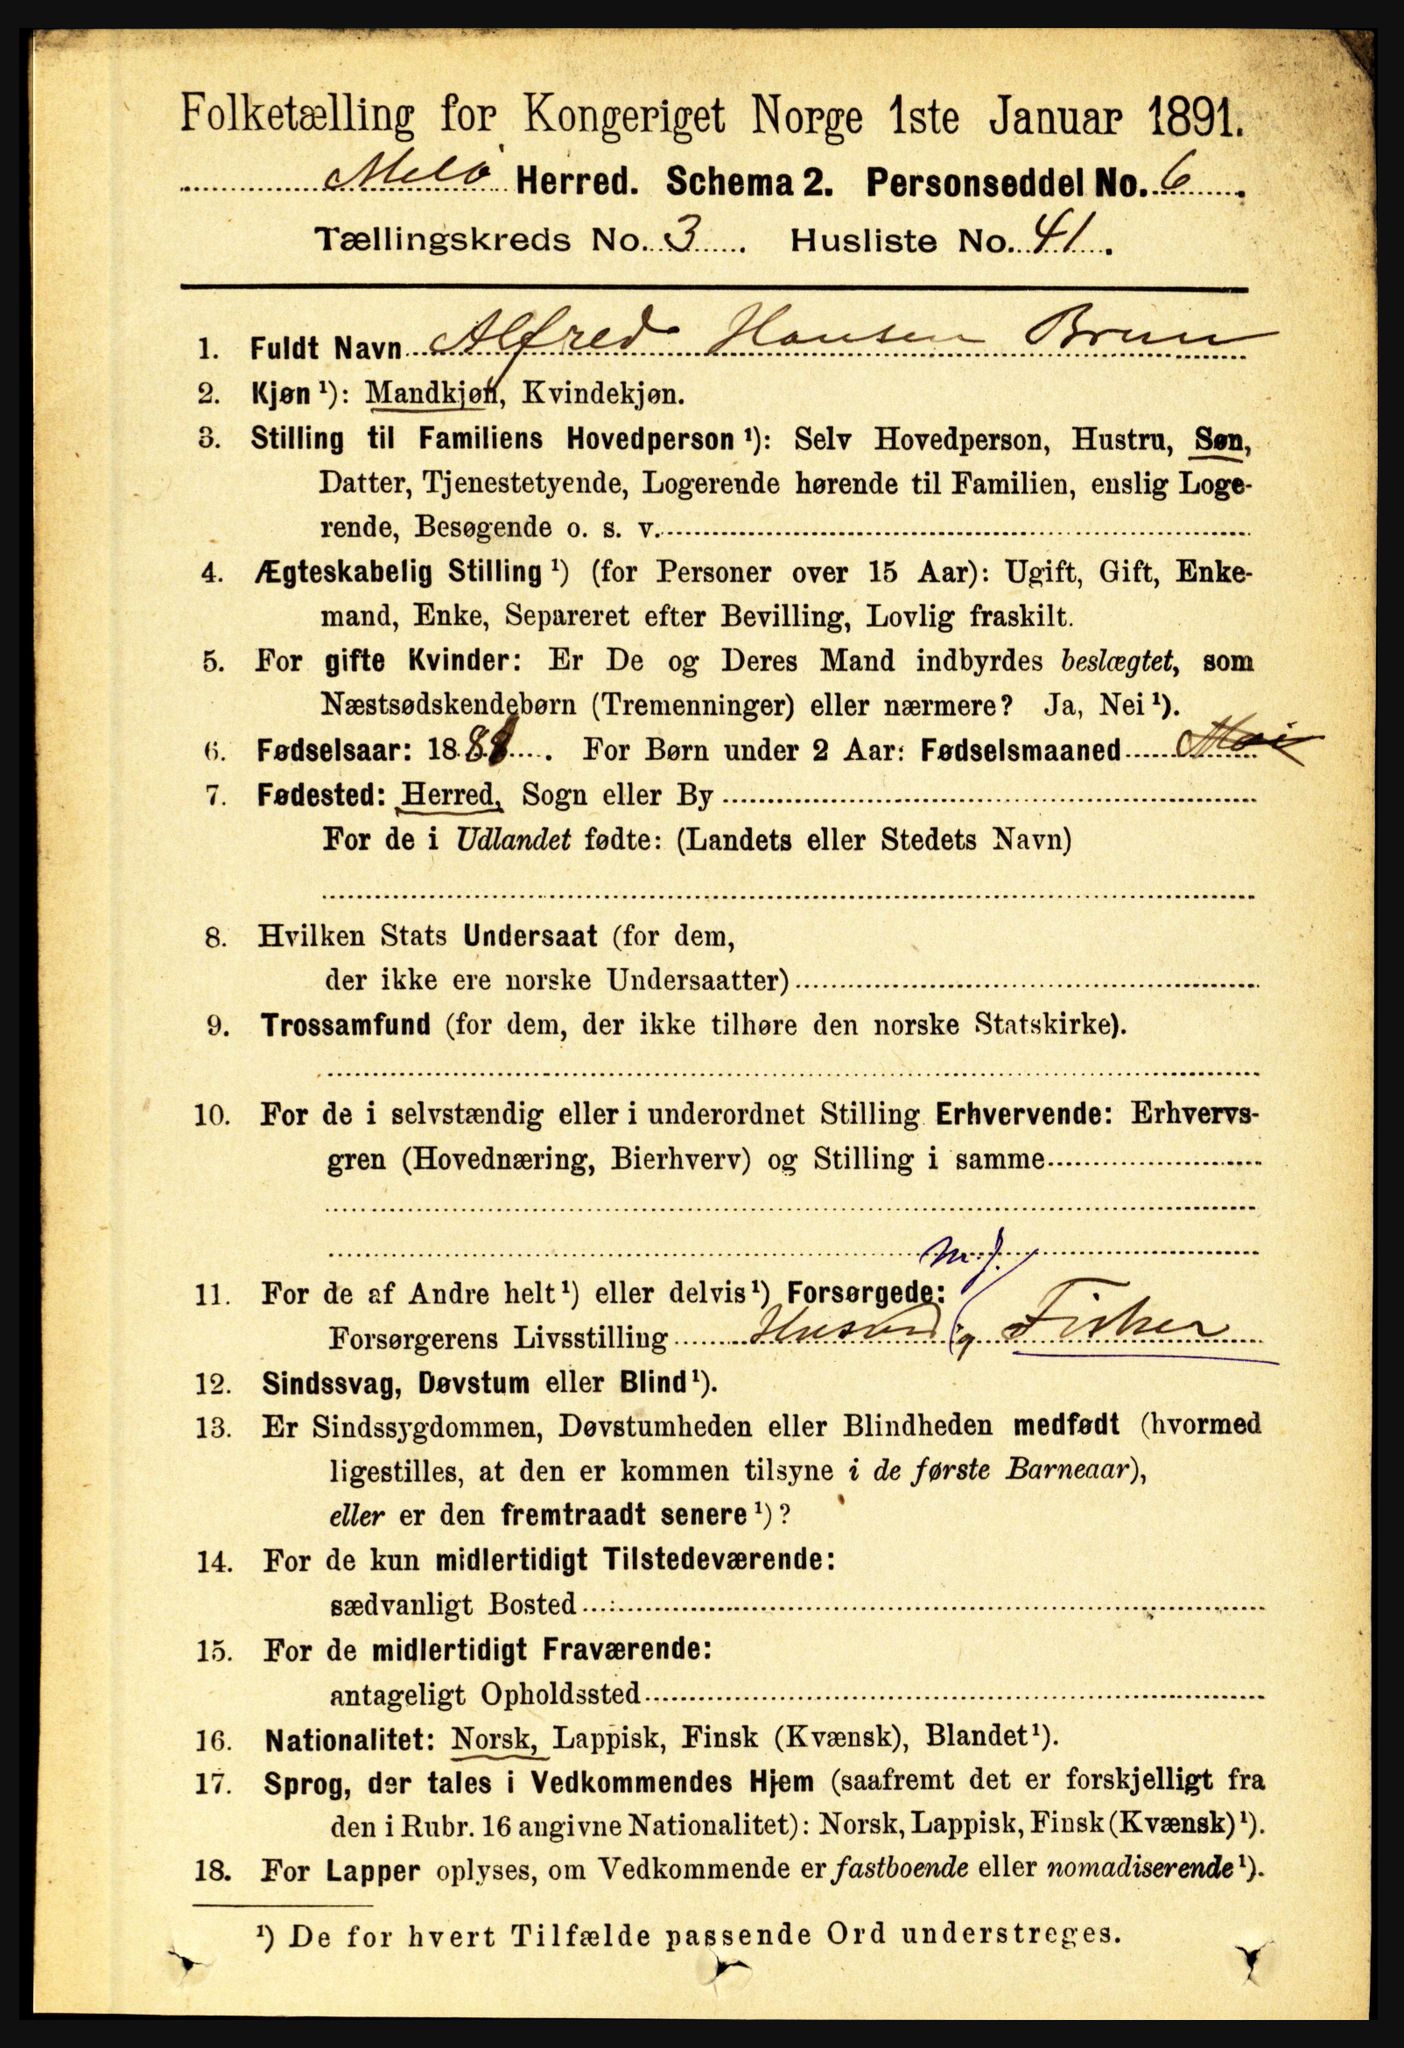 Folketælling for Kongeriget Norge 1ste Januar 1891.
Melø Herred. Schema 2. Personseddel No. 6.
Tællingskreds No. 3. Husliste No. 41.
1. Fuldt Navn Alfred Hansen Brun
2. Kjøn ¹): Mandkjøn, Kvindekjøn.
3. Stilling til Familiens Hovedperson ¹): Selv Hovedperson, Hustru, Søn,
Datter, Tjenestetyende, Logerende hørende til Familien, enslig Loge-
rende, Besøgende o. s. v.
4. Ægteskabelig Stilling ¹) (for Personer over 15 Aar): Ugift, Gift, Enke-
mand, Enke, Separeret efter Bevilling, Lovlig fraskilt.
5. For gifte Kvinder: Er De og Deres Mand indbyrdes beslægtet, som
Næstsødskendebørn (Tremenninger) eller nærmere? Ja, Nei ¹).
6. Fødselsaar: 188 . For Børn under 2 Aar: Fødselsmaaned Mai
7. Fødested: Herred, Sogn eller By
For de i Udlandet fødte: (Landets eller Stedets Navn)
8. Hvilken Stats Undersaat (for dem,
der ikke ere norske Undersaatter)
9. Trossamfund (for dem, der ikke tilhøre den norske Statskirke).
10. For de i selvstændig eller i underordnet Stilling Erhvervende: Erhvervs-
gren (Hovednæring, Bierhverv) og Stilling i samme
11. For de af Andre helt ¹) eller delvis ¹) Forsørgede:
Forsørgerens Livsstilling Fisker
12. Sindssvag, Døvstum eller Blind ¹).
13. Er Sindssygdommen, Døvstumheden eller Blindheden medfødt (hvormed
ligestilles, at den er kommen tilsyne i de første Barneaar),
eller er den fremtraadt senere ¹)?
14. For de kun midlertidigt Tilstedeværende:
sædvanligt Bosted
15. For de midlertidigt Fraværende:
antageligt Opholdssted
16. Nationalitet: Norsk, Lappisk, Finsk (Kvænsk), Blandet ¹).
17. Sprog, der tales i Vedkommendes Hjem (saafremt det er forskjelligt fra
den i Rubr. 16 angivne Nationalitet): Norsk, Lappisk, Finsk (Kvænsk) ¹).
18. For Lapper oplyses, om Vedkommende er fastboende eller nomadiserende ¹).
¹) De for hvert Tilfælde passende Ord understreges.